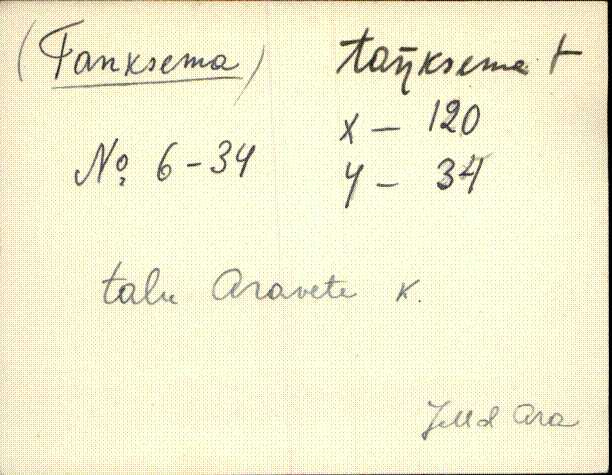 (Tanksema) taŋksema t
x – 120
No. 6 – 34
y – 34
talu Aravete k.
Ara